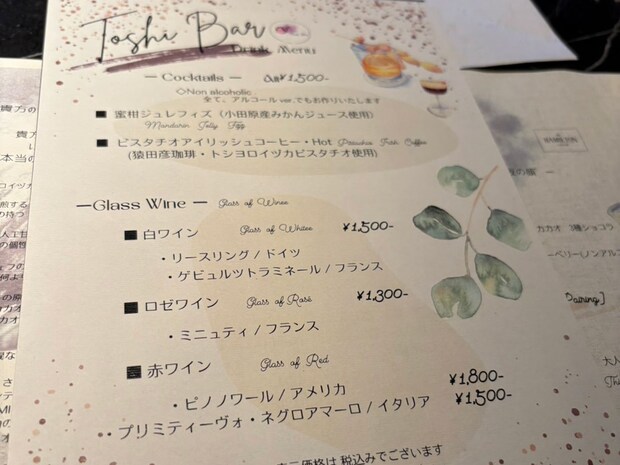 Toshi Bar
Drink Menu
— Cocktails — All ¥1,500-
◇Non alcoholic
全て、アルコールver.でもお作りいたします
■ 蜜柑ジュレフィズ（小田原産みかんジュース使用）
Mandarin Jelly Fizz
■ ピスタチオアイリッシュコーヒー・Hot Pistachio Irish Coffee
（猿田彦珈琲・トシヨロイヅカピスタチオ使用）
—Glass Wine — Glass of Wines
■ 白ワイン Glass of Whites ¥1,500-
・リースリング / ドイツ
・ゲビュルツトラミネール / フランス
■ ロゼワイン Glass of Rosé ¥1,300-
・ミニュティ / フランス
■ 赤ワイン Glass of Red
・ピノノワール / アメリカ ¥1,800-
・プリミティーヴォ・ネグロアマーロ / イタリア ¥1,500-
価格は 税込みでございます
貴方の
本当の
カカオ 3種ショコラ
ーベリー(ノンアルコ
Pairing]
大人